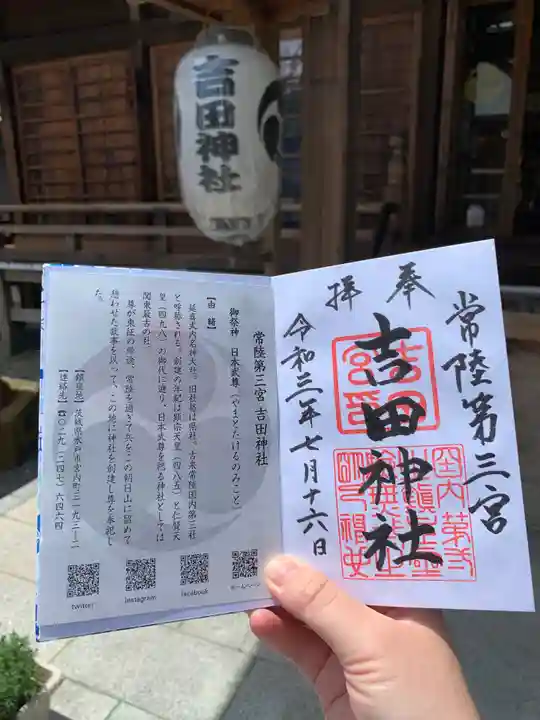 吉田神社
奉拝
常陸第三宮
吉田神社
令和三年七月十六日
常陸第三宮 吉田神社
御祭神 日本武尊(やまとたけるのみこと)
【由緒】
延喜式内名神大社。旧社格は県社。古来常陸国内第三社
と呼称される。創建の年紀は顕宗天皇(四八五)と仁賢天
皇(四九八)の御代に遡り、日本武尊を祀る神社としては
関東最古の社。
尊が東征の帰途、常陸を過ぎて兵をこの朝日山に留めて
憩わせた故事を以って、この地に神社を創建し尊を奉祀し
た。
【鎮座地】茨城県水戸市宮内町三一九三―二
【連絡先】☎〇二九(二四七)六四六四
twitter
Instagram
facebook
ホームページ